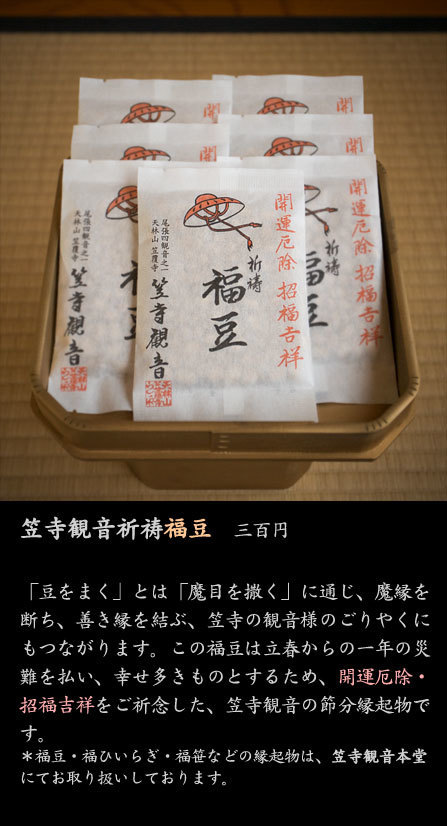 開運厄除 招福吉祥
祈祷
福豆
尾張四観音之一
天林山 笠覆寺
笠寺觀音
笠寺観音祈祷福豆 三百円
「豆をまく」とは「魔目を撒く」に通じ、魔縁を
断ち、善き縁を結ぶ、笠寺の観音様のごりやくに
もつながります。この福豆は立春からの一年の災
難を払い、幸せ多きものとするため、開運厄除・
招福吉祥をご祈念した、笠寺観音の節分縁起物で
す。
＊福豆・福ひいらぎ・福笹などの縁起物は、笠寺観音本堂
にてお取り扱いしております。